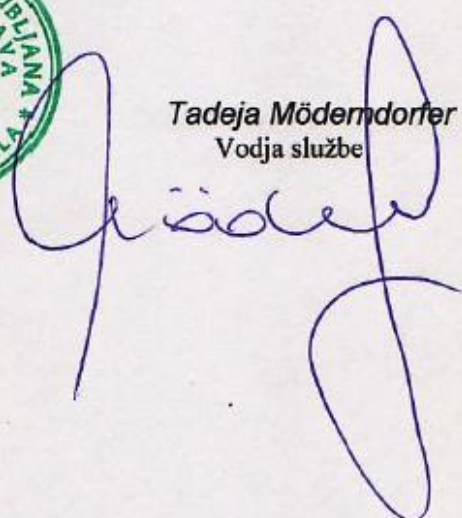 BLJANA *
AVA
LA
Tadeja Möderndorfer
Vodja službe